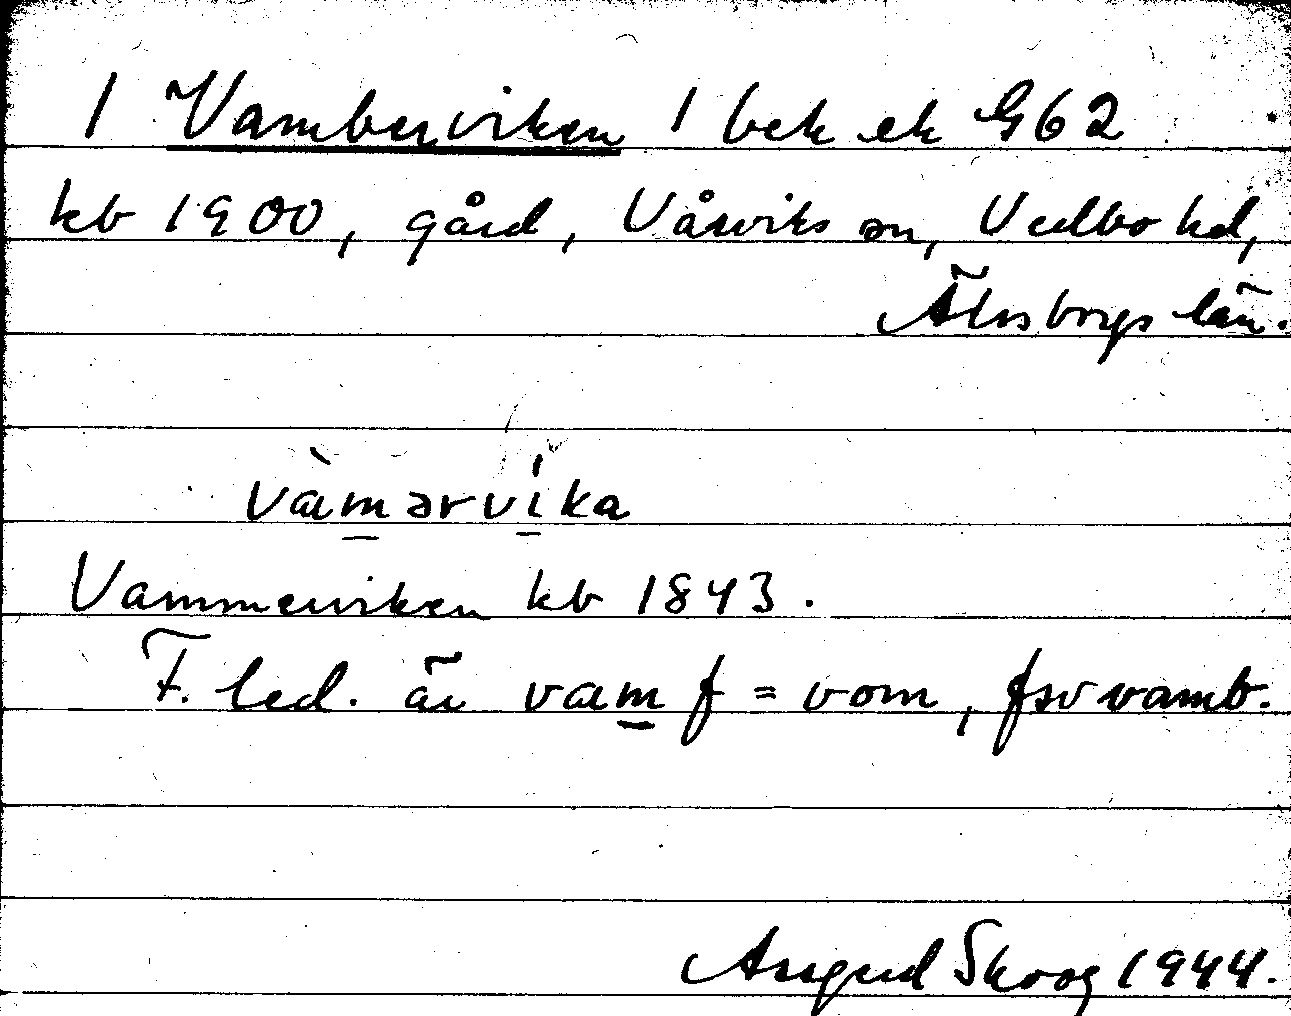 1 Vamberviken 1 bek ek G62
kb 1900, gård, Vårviks sn, Vedbo hd,
Älvsborgs län.
vàmərvíka
Vammerviken kb 1843.
F. led. är vam f = vom, fsv vamb.
Skoog 1944.